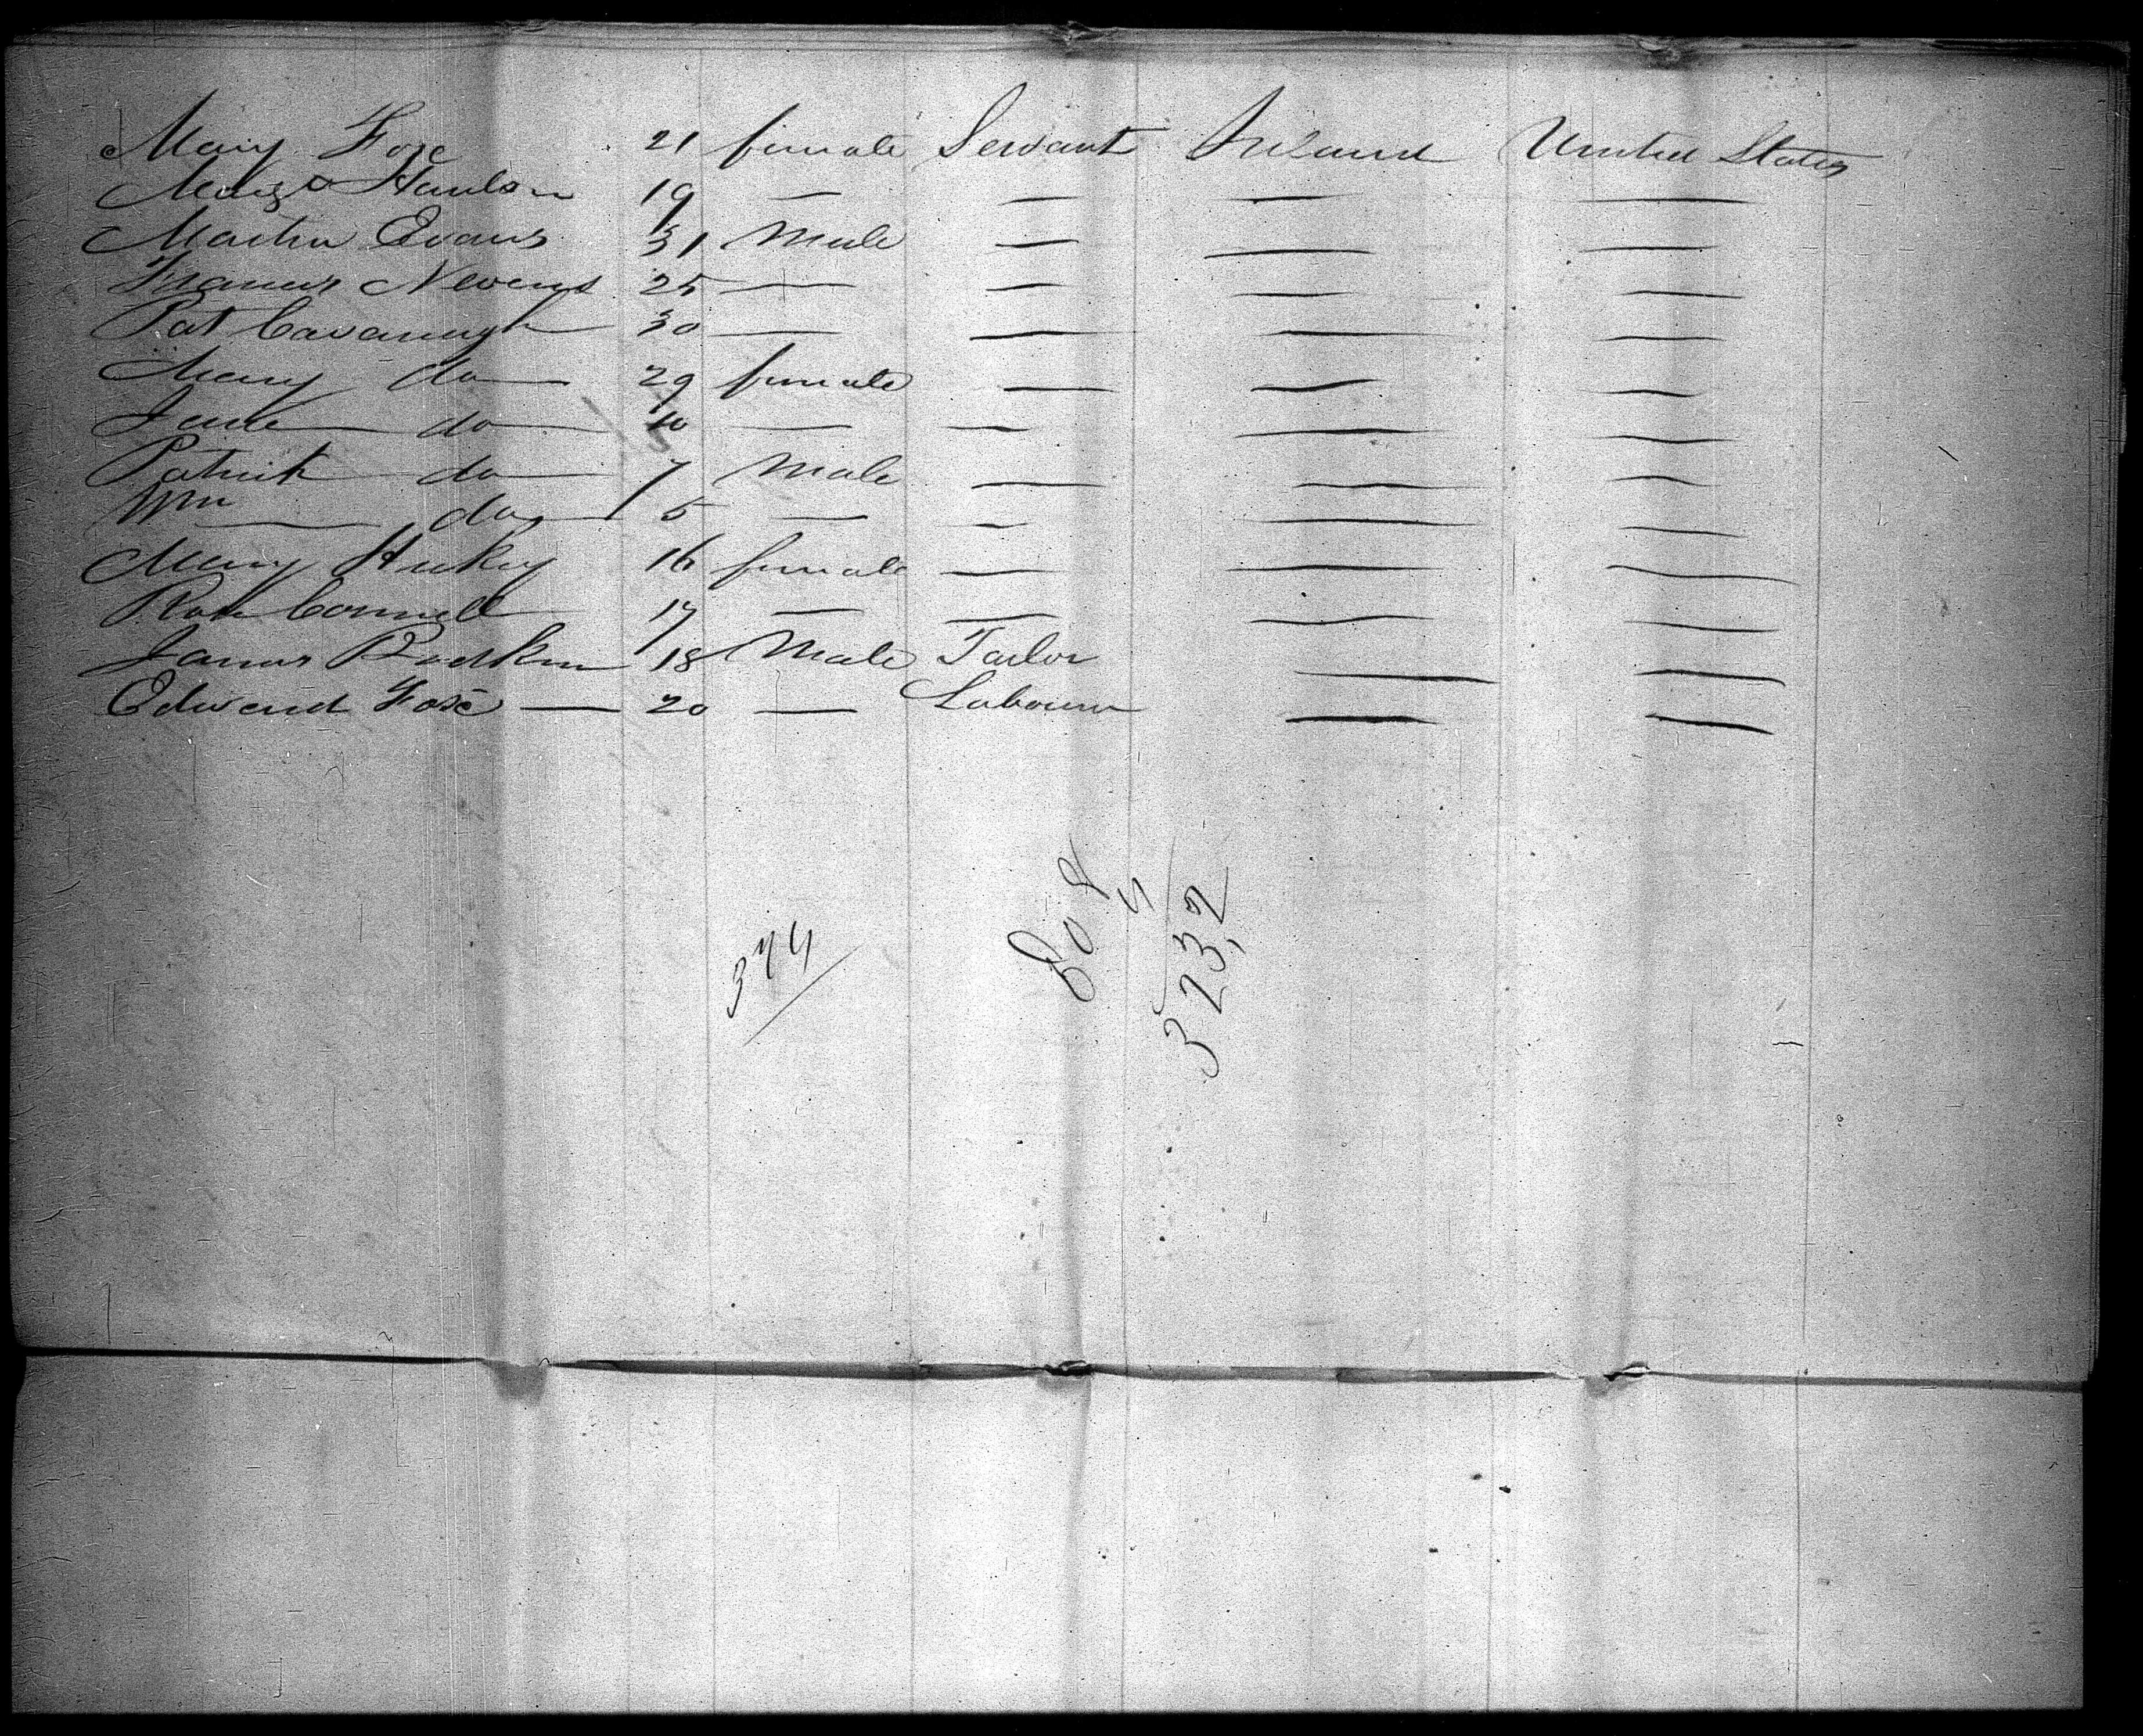 Mary Foxe 21 female Servant Ireland United States
Mary Hanlon 19 — — — —
Martin Evans 31 Male — — —
Francis Nevens 25 — — — —
Pat Cavanaugh 30 — — — —
Mary do — 29 female — — —
Jane — do — 10 — — — —
Patrick — do — 7 Male — — —
Wm — do — 5 — — — —
Mary Hukey 16 female — — —
Rose Connell 17 — — — —
James 18 Male Tailor — —
Edward Foxe — 20 — Labourer — —
374
808
4
3232